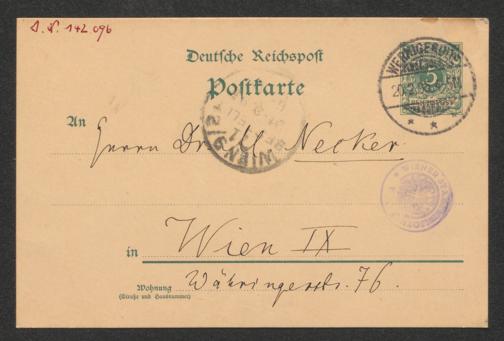 I. N. 142 096
Deutsche Reichspost
Postkarte
WERNIGERODE
5
An
Herrn Dr. M. Necker
WIEN 9/2
BESTELLT
WIENER
in Wien IX
Währingerstr. 76.
Wohnung
(Straße und Hausnummer)